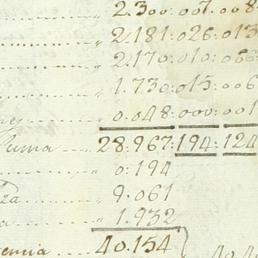 2.300:001:008
2.181:026:013
2.170:010:066
1.730:015:006
0.048:000:001
Suma .... 28.967:194:124
0.194
9.061
1.932
40.154